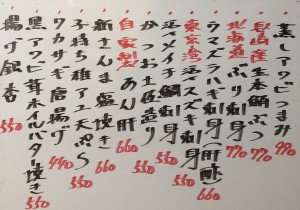 蒸しアワビつまみ 990
長崎産生本鮪ぶつ 770
北海道ぶり刺身 770
ウマヅラハギ刺身(肝酢) 660
東京湾活スズキ刺身 550
活メイチ鯛刺身 550
かつお土佐造り 550
自家製あん肝 660
新さんま塩焼き 660
子持ち稚アユ天ぷら 550
ワカサギ唐揚げ 440
黒アワビ茸オイルバター焼き 550
揚げ銀杏 550